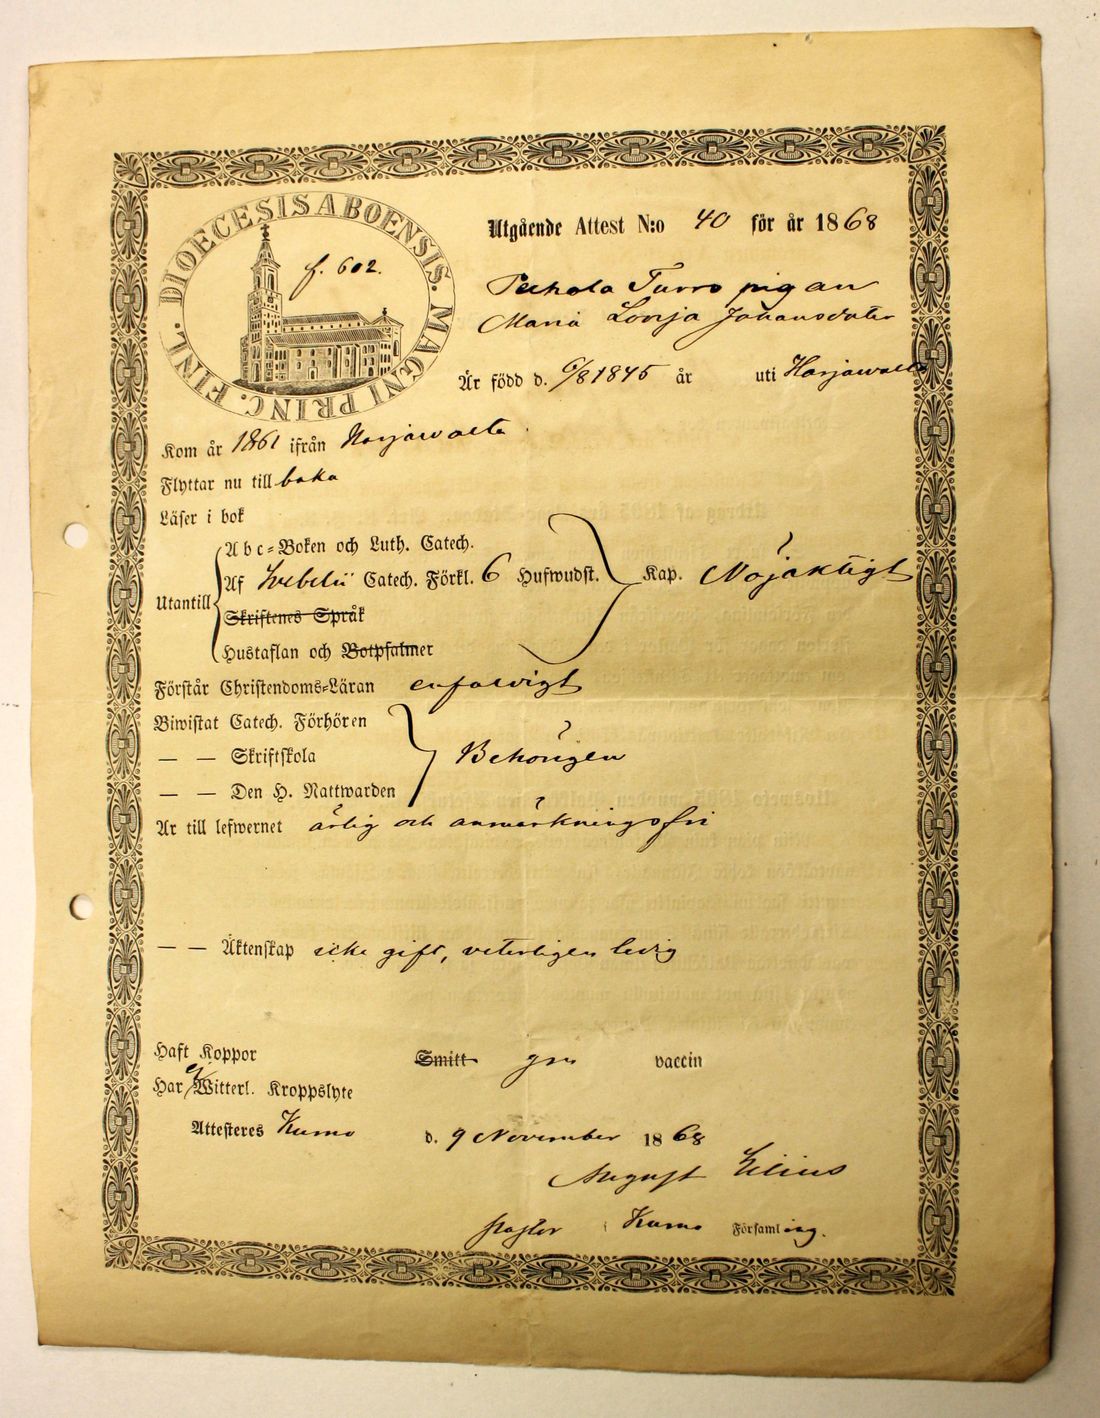 DIOECESIS ABOENSIS. MAGNI PRINC. FINL.
f. 602.
Utgående Attest N:o 40 för år 1868
Turro pigan
Maria Lovisa Johansdoter
Är född d. 6/8 1845 år uti Harjawalta
Kom år 1861 ifrån Harjawalta
Flyttar nu till baka
Läser i bok
Utantill
Abc-Boken och Luth. Catech.
Af Svebelii Catech. Förkl. 6 Hufwudst.
Kap. Nöjaktigt
Skriftenes Språk
Hustaflan och Botpsalmer
Förstår Christendoms-Läran enfaldigt
Biwistat Catech. Förhören
— — Skriftskola
Behörigen
— — Den H. Nattwarden
Är till lefwernet ärlig och anmärkningsfri
— — Äktenskap icke gift, veterligen ledig
Haft Koppor Smitt gm vaccin
Har ej Witterl. Kroppslyte
Attesteres Kumo d. 9 November 1868
August
Pastor i Kumo Församling.